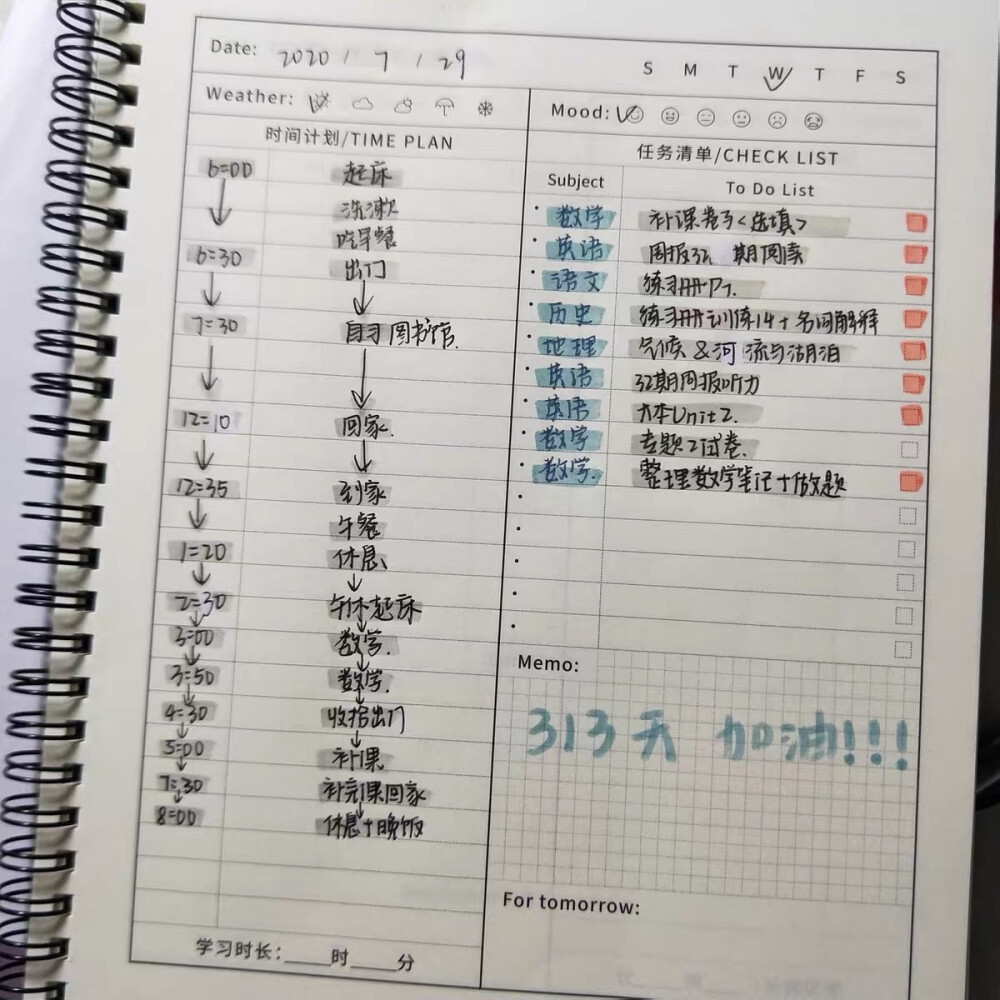 Date: 2020 / 7 / 29
S M T W T F S
Weather:
Mood:
时间计划/TIME PLAN
6:00 起床
洗漱
吃早餐
6:30 出门
7:30 自习图书馆.
12:10 回家.
12:35 到家
午餐
1:20 休息
2:30 午休起床
3:00 数学.
3:50 数学.
4:30 收拾出门
5:00 补课
7:30 补完课回家
8:00 休息+晚饭
学习时长:____时____分
任务清单/CHECK LIST
Subject To Do List
数学 补课卷3<选填>
英语 周报32 期阅读
语文 练习册P7.
历史 练习册训练14+名词解释
地理 气候&河流与湖泊
英语 32期周报听力
英语 大本Unit2.
数学 专题2试卷.
数学. 整理数学笔记+做题
Memo:
313天 加油!!!
For tomorrow: